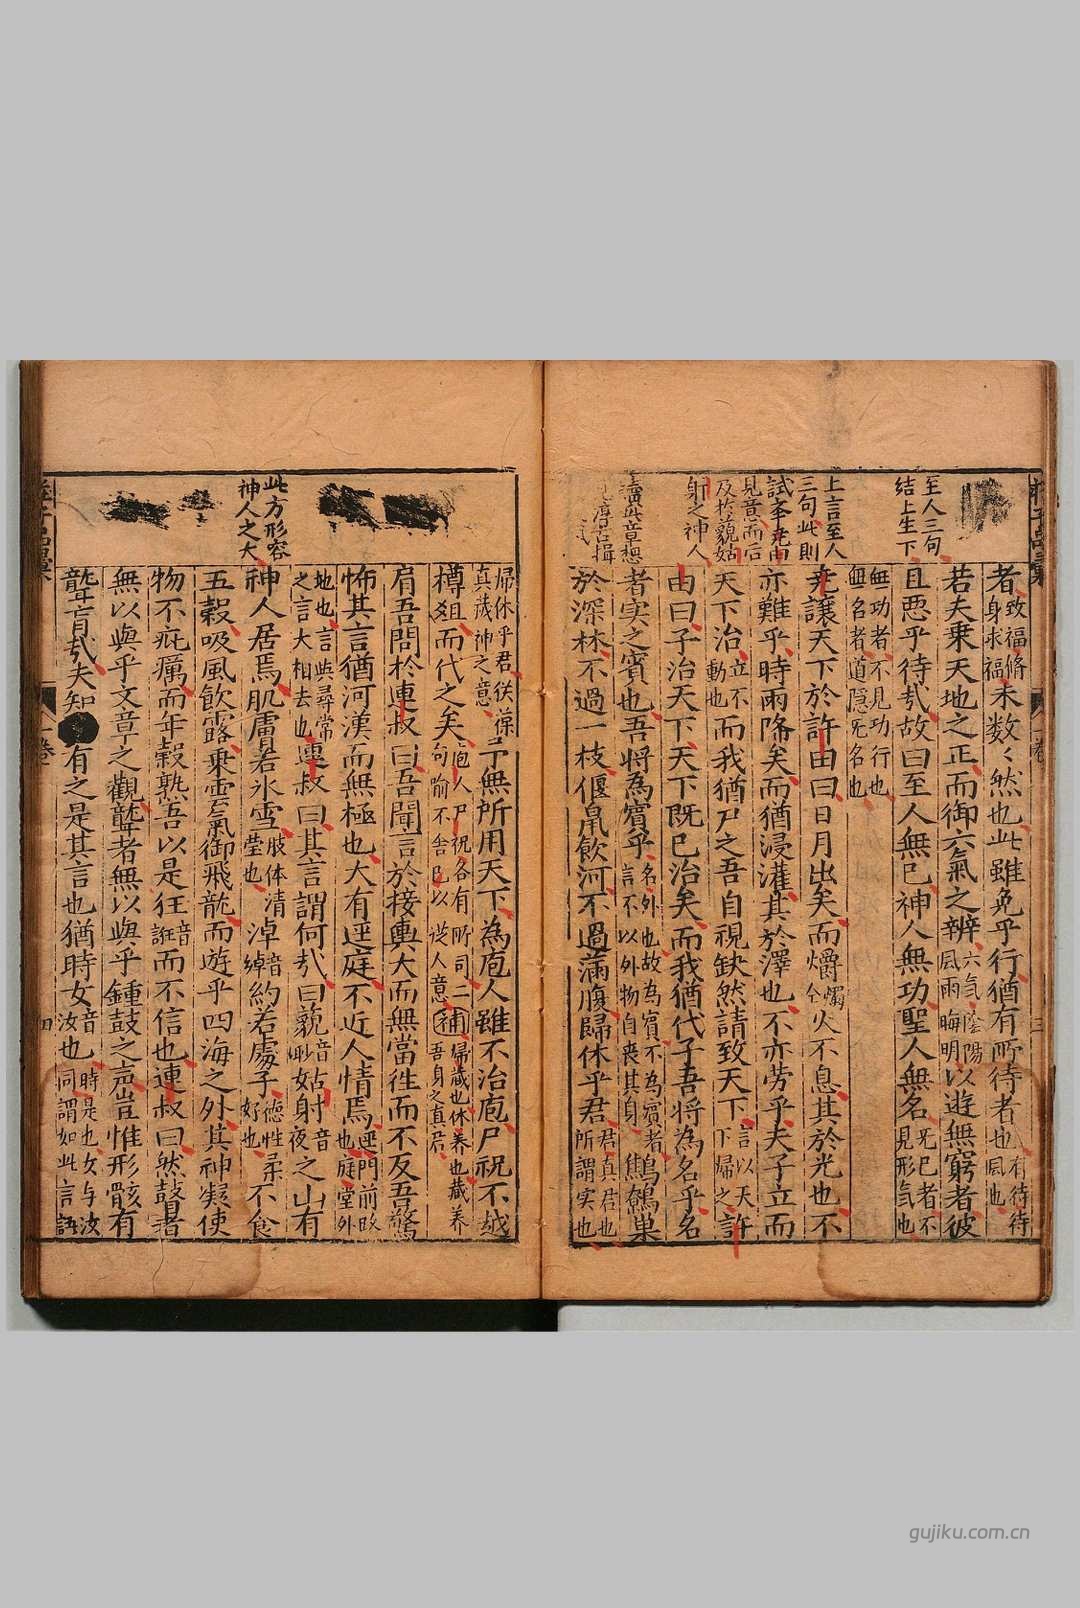 至人三句
結上生下
上言至人
三句此則
試𠦑堯由
見音而后
及於藐姑
射之神人
讀此章想
者致福脩身求福未数々然也此雖免乎行猶有所待者也風也有待待
若夫乗天地之正而御六氣之辨六氣陰陽風雨晦明以遊無窮者彼
且惡乎待㢤故曰至人無己神人無功聖人無名无己者不見形氣也
無功者不見功行也無名者道隱无名也
堯讓天下於許由曰日月出矣而爝火不息其於光也不
亦難乎時雨降矣而猶浸灌其於澤也不亦劳乎夫子立而
天下治立不動也而我猶尸之吾自視缺然請致天下言以天下歸之許
由曰子治天下天下既已治矣而我猶代子吾將為名乎名
者実之賓也吾將為賓乎名外也故為賓不為賓者言不以外物自喪其身鷦鷯巢
於深林不過一枝偃鼠飲河不過滿腹歸休乎君君真君也所謂実也
歸休乎君伕葆真藏神之意予無所用天下為庖人雖不治庖尸祝不越
樽俎而代之矣庖人尸祝各有所司二句喻不舍己以従人意補歸藏也休养也藏养吾身之真君
肩吾問於連叔曰吾聞言於接輿大而無當徃而不反吾驚
怖其言猶河漢而無極也大有逕庭不近人情焉逕門前路也庭堂外
地也言與尋常之言大相去也連叔曰其言謂何㢤曰藐音眇姑射音夜之山有
此方形容
神人之大
神人居焉肌膚若氷雪肢体清瑩也淖音綽約若處子德性柔好也不食
五穀吸風飲露乗雲氣御飛龍而遊乎四海之外其神凝使
物不疵癘而年穀熟吾以是狂音誑而不信也連叔曰然瞽者
無以與乎文章之觀聾者無以與乎鍾鼓之声豈惟形骸有
聾盲㢤夫知有之是其言也猶時女音汝也時是也女与汝同謂如此言語
卷
三
卷
四
gujiku.com.cn